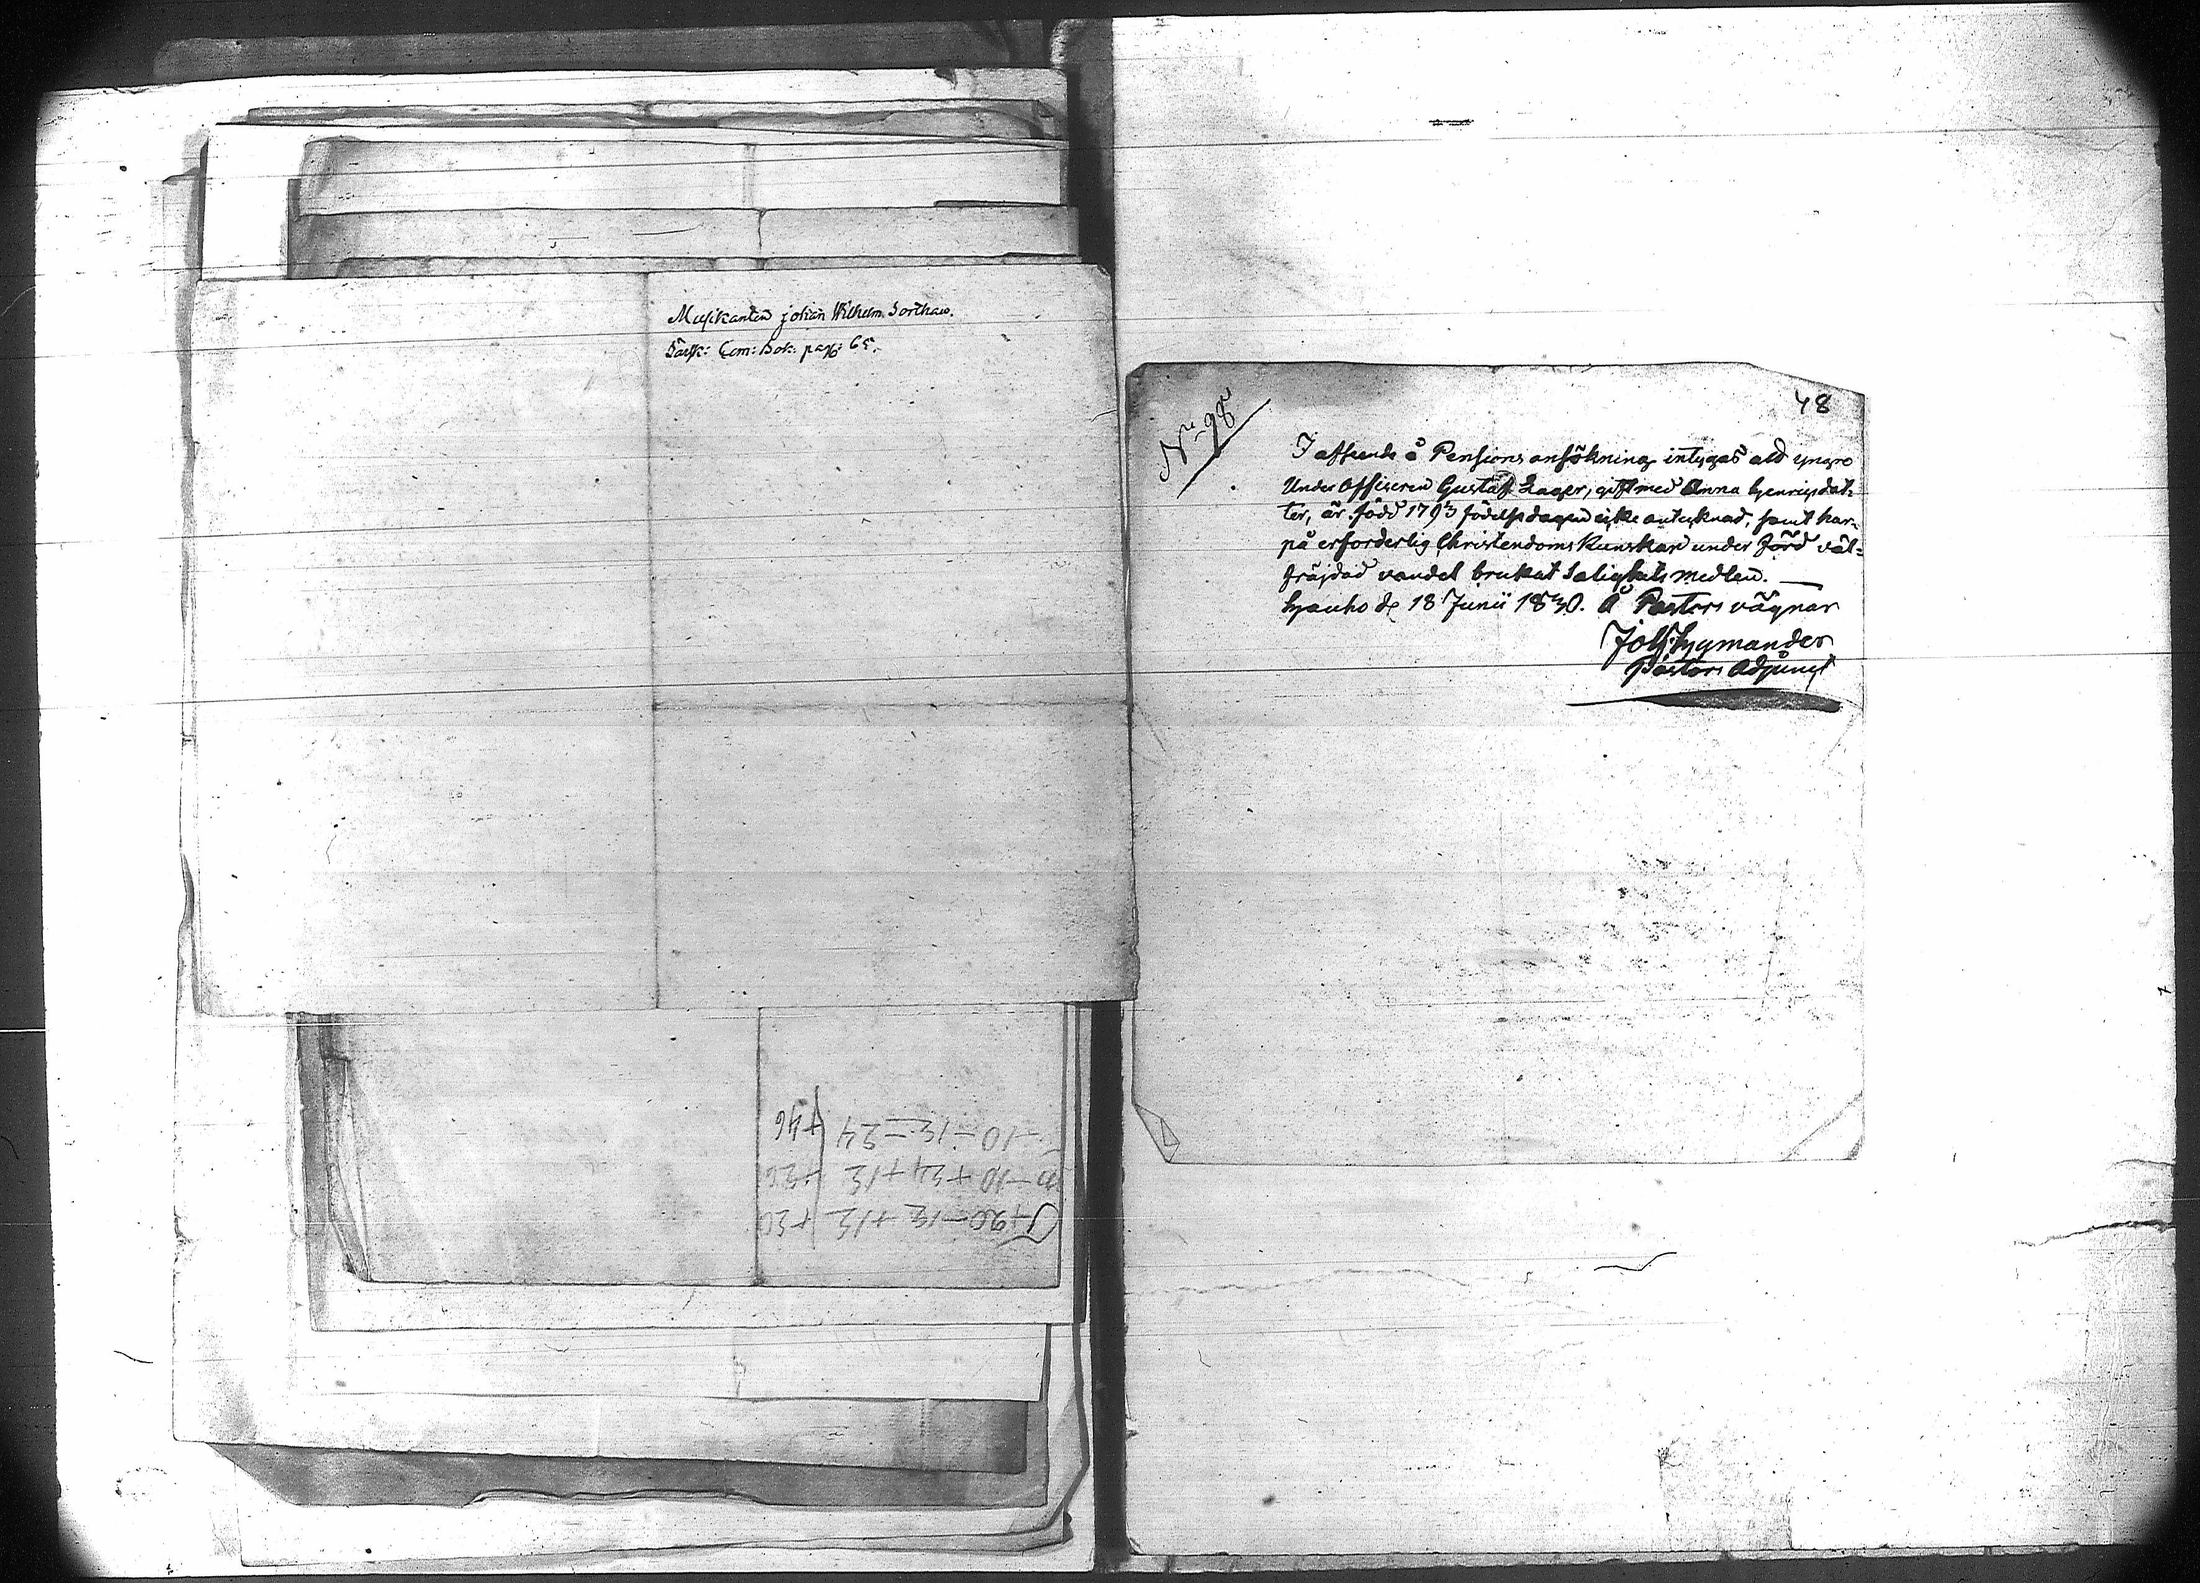 Musikanten johan Wilhelm
Com: Bok: pag: 65.
48
No 98
I afseende å Pensions ansökning intygas att yngre
Under Officeren Gustaf Lager, gift med Anna Henricsdot-
ter, är född 1793 födelsedagen icke antecknad, samt har
på erforderlig Christendoms Kunskap under förd väl-
fräjdad vandel brukat Salighets medlen.
Hauho d. 18 Junii 1830. Å Pastors vägnar
Joh. Hymander
Pastors Adjunct
+20 -12 +12 +20
-10 +24 +12 +26
-10 -12 = 24 +46